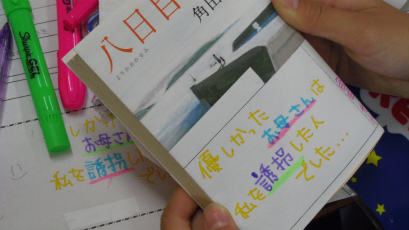 八日目
ようかめのせみ
角田
優しかった
お母さんは
私を誘拐した人
でした…
しか
お母さ
私を誘拐し